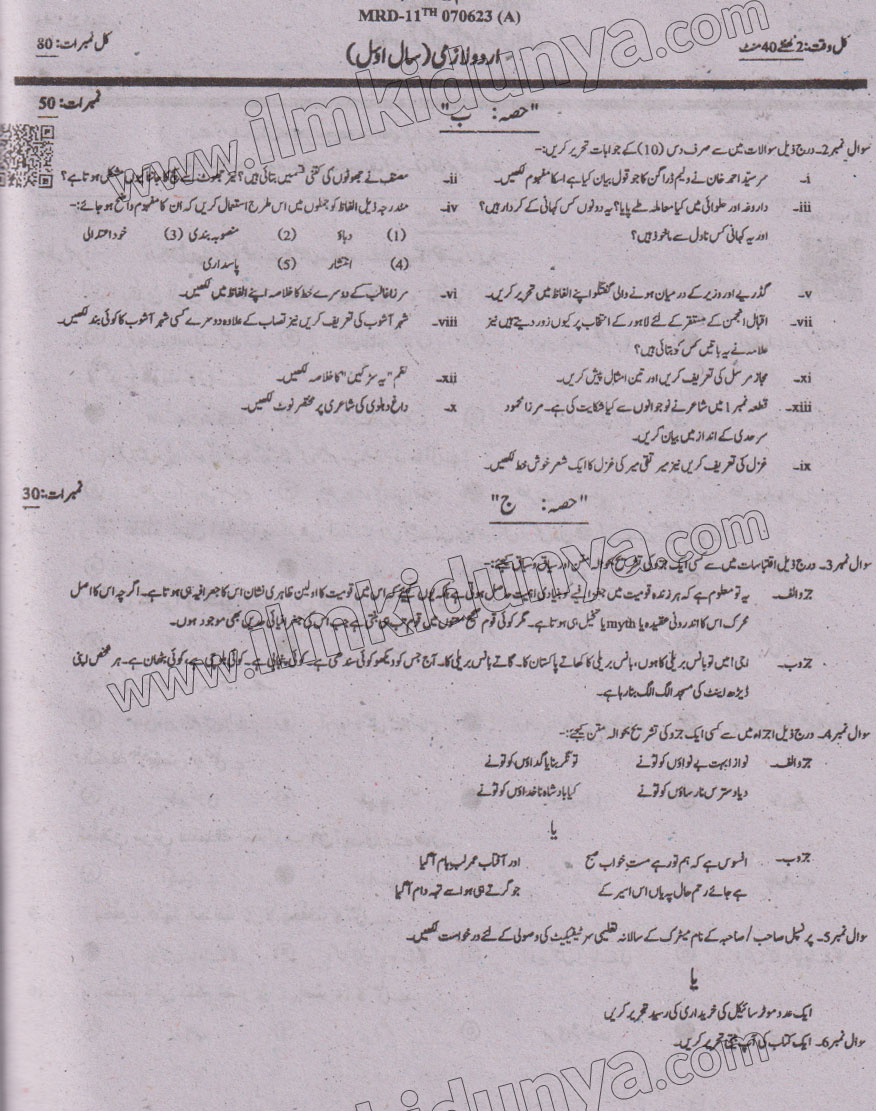 MRD-11TH 070623 (A)
کل وقت: 2 گھنٹے 40 منٹ
اردو لازمی (سال اوّل)
کل نمبرات: 80
"حصہ: ب"
نمبرات: 50
سوال نمبر2۔ درج ذیل سوالات میں سے صرف دس (10) کے جوابات تحریر کریں:-
i۔ سر سید احمد خان نے ولیم ڈراگن کا جو قول بیان کیا ہے اسکا مفہوم لکھیں۔
ii۔ مصنف نے جھوٹوں کی کتنی قسمیں بتائی ہیں؟ نیز جھوٹ سے سچ کا جاننا کیوں مشکل ہوتا ہے؟
iii۔ داروغہ اور حلوائی میں کیا معاملہ طے پایا؟ یہ دونوں کس کہانی کے کردار ہیں؟
اور یہ کہانی کس ناول سے ماخوذ ہیں؟
iv۔ مندرجہ ذیل الفاظ کو جملوں میں اس طرح استعمال کریں کہ ان کا مفہوم واضح ہو جائے:-
(1) دباؤ (2) منصوبہ بندی (3) خود اعتدالی
(4) انتشار (5) پاسداری
v۔ گڈریے اور وزیر کے درمیان ہونے والی گفتگو اپنے الفاظ میں تحریر کریں۔
vi۔ مرزا غالب کے دوسرے خط کا خلاصہ اپنے الفاظ میں لکھیں۔
vii۔ اقبال انجمن کے مستقر کے لئے لاہور کے انتخاب پر کیوں زور دیتے ہیں نیز
علامہ نے یہ باتیں کس کو بتائی ہیں؟
viii۔ شہر آشوب کی تعریف کریں نیز نصاب کے علاوہ دوسرے کسی شہر آشوب کا کوئی بند لکھیں۔
xi۔ مجاز مرسل کی تعریف کریں اور تین امثال پیش کریں۔
xii۔ نظم "یہ سڑکیں" کا خلاصہ لکھیں۔
xiii۔ قطعہ نمبر 1 میں شاعر نے نوجوانوں سے کیا شکایت کی ہے۔ مرزا محمود
سرحدی کے انداز میں بیان کریں۔
x۔ داغ دہلوی کی شاعری پر مختصر نوٹ لکھیں۔
ix۔ غزل کی تعریف کریں نیز میر تقی میر کی غزل کا ایک شعر خوش خط لکھیں۔
"حصہ: ج"
نمبرات: 30
سوال نمبر3۔ درج ذیل اقتباسات میں سے کسی ایک جزو کی تشریح بحوالہ متن اور سیاق و سباق کیجئے:-
جزو الف۔ یہ تو معلوم ہے کہ ہر زندہ قومیت میں جغرافیے کو بنیادی اہمیت حاصل ہوتی ہے بلکہ یوں کہئے کہ اس میں قومیت کا اولین ظاہری نشان اس کا جغرافیہ ہی ہوتا ہے۔ اگرچہ اس کا اصل
محرک اس کا اندرونی عقیدہ یا myth یا تخیل ہی ہوتا ہے۔ مگر کوئی قوم صحیح معنوں میں قوم جب ہی بنتی ہے جب اس کی جغرافیائی حدیں بھی موجود ہوں۔
جزو ب۔ اجی! میں تو بانس بریلی کا ہوں، بانس بریلی کا کھاتے پاکستان کا۔ گاتے بانس بریلی کا۔ آج جس کو دیکھو کوئی سندھی ہے۔ کوئی پنجابی ہے۔ کوئی بلوچی ہے، کوئی پٹھان ہے۔ ہر شخص اپنی
ڈیڑھ اینٹ کی مسجد الگ الگ بنا رہا ہے۔
سوال نمبر4۔ درج ذیل اجزاء میں سے کسی ایک جزو کی تشریح بحوالہ متن کیجئے:-
جزو الف۔ نوازا بہت بے نواؤں کو تونے تونگر بنایا گداؤں کو تونے
دیا دسترس نارساؤں کو تونے کیا بادشاہ ناخداؤں کو تونے
یا
جزو ب۔ افسوس ہے کہ ہم تو رہے مست خواب صبح اور آفتاب عمر لب بام آ گیا
ہے جائے رحم حال پہ یاں اس اسیر کے جو گرتے ہی ہوا سے تہہ دام آ گیا
سوال نمبر5۔ پرنسپل صاحب/صاحبہ کے نام میٹرک کے سالانہ تعلیمی سرٹیفیکیٹ کی وصولی کے لئے درخواست لکھیں۔
یا
ایک عدد موٹر سائیکل کی خریداری کی رسید تحریر کریں
سوال نمبر6۔ ایک کتاب کی آپ بیتی تحریر کریں۔
www.ilmkidunya.com
www.ilmkidunya.com
ilmkidunya.com